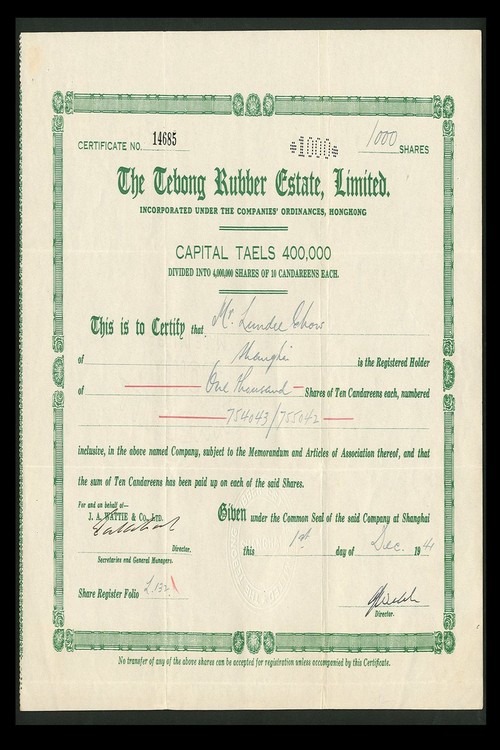 CERTIFICATE NO. 14685 *1000* 1000 SHARES
The Tebong Rubber Estate, Limited.
INCORPORATED UNDER THE COMPANIES' ORDINANCES, HONGKONG
CAPITAL TAELS 400,000
DIVIDED INTO 4,000,000 SHARES OF 10 CANDAREENS EACH.
This is to Certify that Mr. Lundee Chow
of Shanghai is the Registered Holder
of One thousand Shares of Ten Candareens each, numbered
754043/755042
inclusive, in the above named Company, subject to the Memorandum and Articles of Association thereof, and that
the sum of Ten Candareens has been paid up on each of the said Shares.
For and on behalf of—
J. A. WATTIE & CO., LTD.
Director.
Secretaries and General Managers.
Given under the Common Seal of the said Company at Shanghai
this 1st day of Dec. 1941
Share Register Folio L.132
Director.
No transfer of any of the above shares can be accepted for registration unless accompanied by this Certificate.